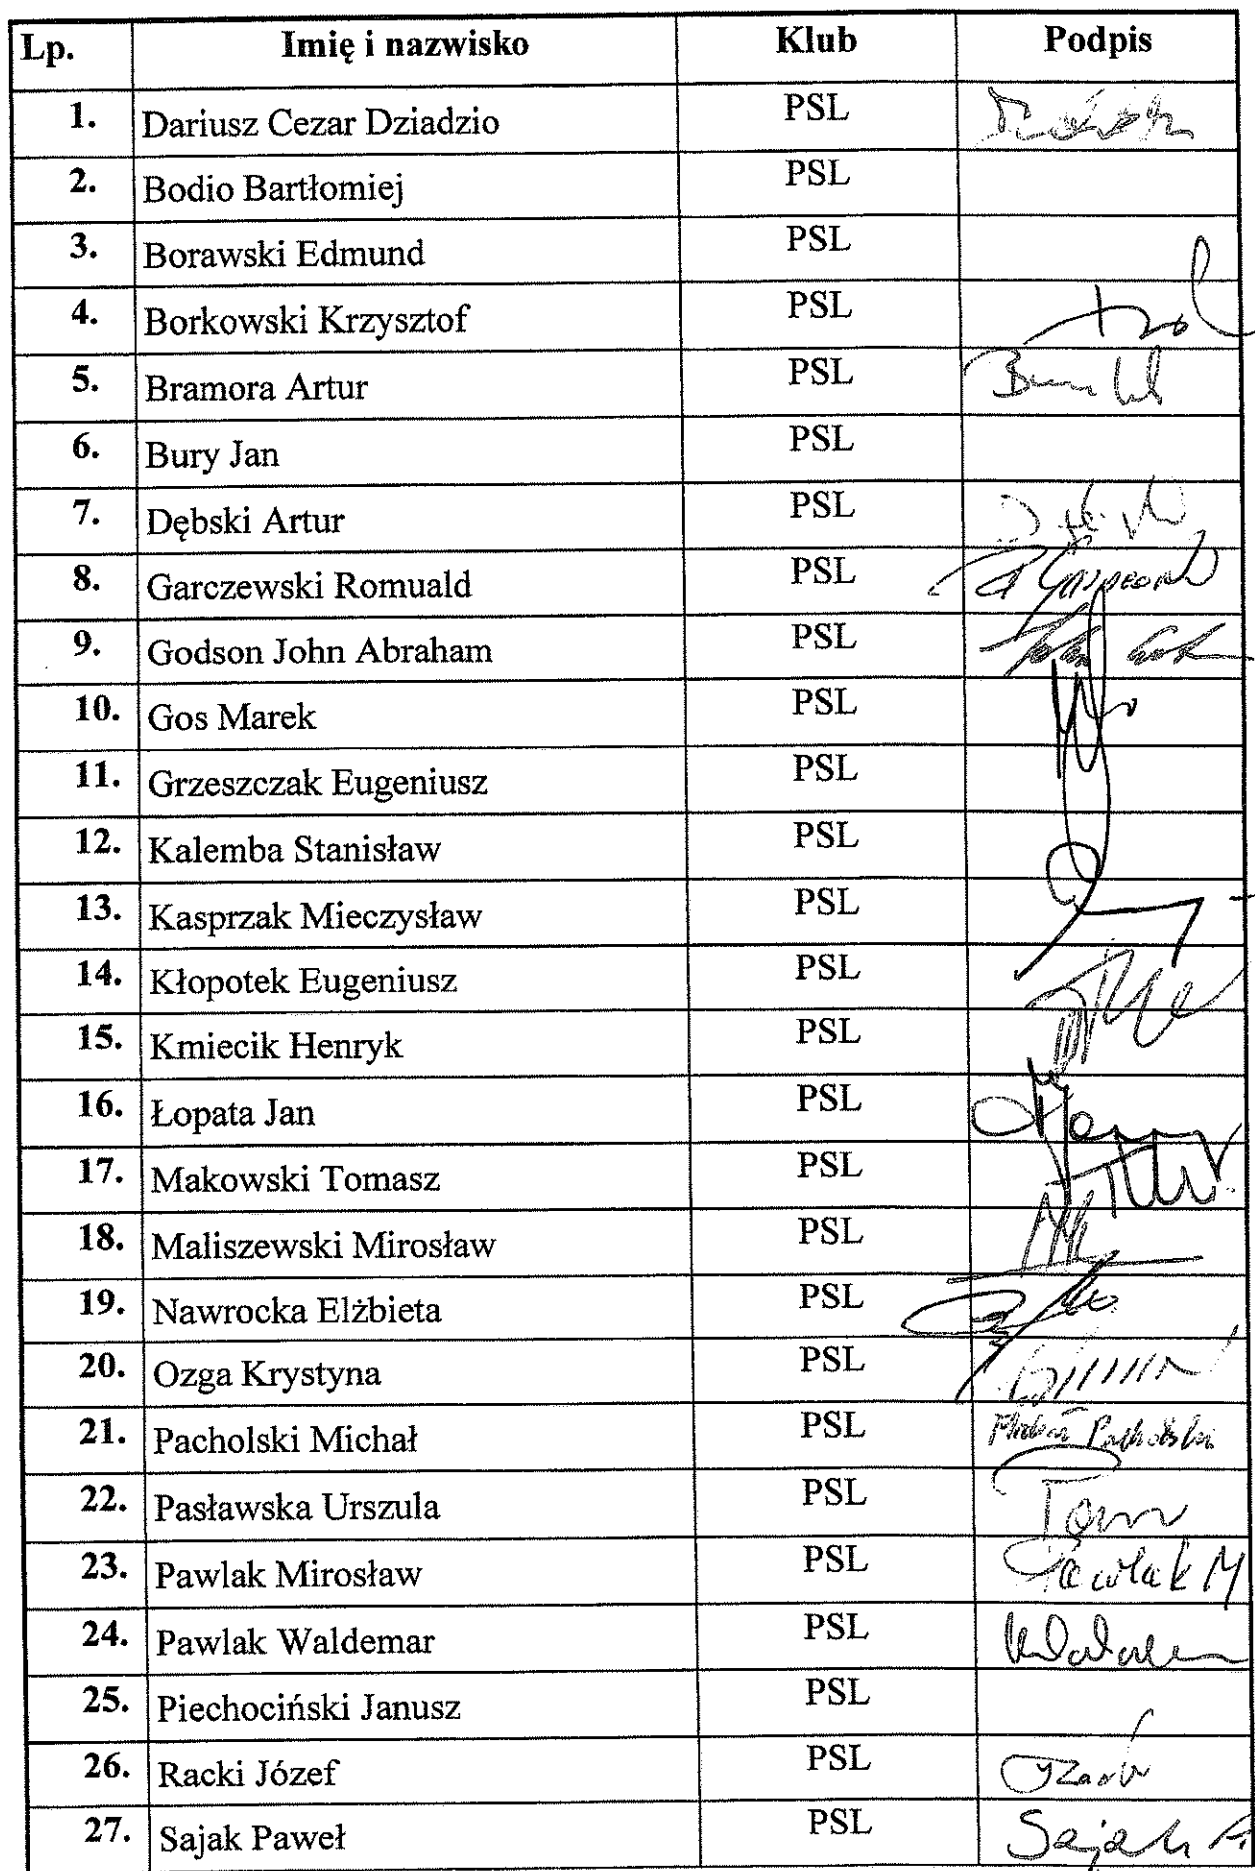 Lp. Imię i nazwisko Klub Podpis
1. Dariusz Cezar Dziadzio PSL
2. Bodio Bartłomiej PSL
3. Borawski Edmund PSL
4. Borkowski Krzysztof PSL
5. Bramora Artur PSL
6. Bury Jan PSL
7. Dębski Artur PSL
8. Garczewski Romuald PSL
9. Godson John Abraham PSL
10. Gos Marek PSL
11. Grzeszczak Eugeniusz PSL
12. Kalemba Stanisław PSL
13. Kasprzak Mieczysław PSL
14. Kłopotek Eugeniusz PSL
15. Kmiecik Henryk PSL
16. Łopata Jan PSL
17. Makowski Tomasz PSL
18. Maliszewski Mirosław PSL
19. Nawrocka Elżbieta PSL
20. Ozga Krystyna PSL
21. Pacholski Michał PSL Michał Pacholski
22. Pasławska Urszula PSL
23. Pawlak Mirosław PSL Pawlak M
24. Pawlak Waldemar PSL
25. Piechociński Janusz PSL
26. Racki Józef PSL
27. Sajak Paweł PSL Sajak P